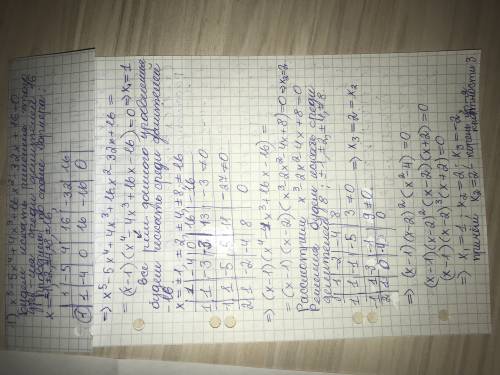 1) x⁵-5x⁴+4x³+16x²-32x+16=0
будем искать решения этого
ур-я среди делителей 16
x=±1±2±4±8±16
1 -5 4 16 -32 16
1 1 -4 0 16 -16 0
⇒ x⁵-5x⁴+4x³+16x²-32x+16=
=(x-1)(x⁴-4x³+16x-16)=0 ⇒ x₁=1
Все реш. данного уравнения
будем искать среди делителей
-16
x=±1±2±4±8±16
1 -4 0 16 -16
1 1 -3 -3 13 -3≠0
-1 1 -5 5 11 -27≠0
2 1 -2 -4 8 0
⇒ (x-1)(x⁴-4x³+16x-16)=
=(x-1)(x-2)(x³-2x²-4x+8)=0 ⇒ x₂=2
Рассмотрим x³-2x²-4x+8=0
Решения будем искать среди
делителей 8; ±1,±2,±4,±8
1 -2 -4 8
1 1 -1 -5 3≠0
-1 1 -3 -1 9≠0
2 1 0 -4 0
⇒ x₃=2=x₂
⇒ (x-1)(x-2)²(x²-4)=0
(x-1)(x-2)²(x-2)(x+2)=0
(x-1)(x-2)³(x+2)=0
⇒ x₁=1, x₂=2, x₃=-2,
x₂=2, кратности 3